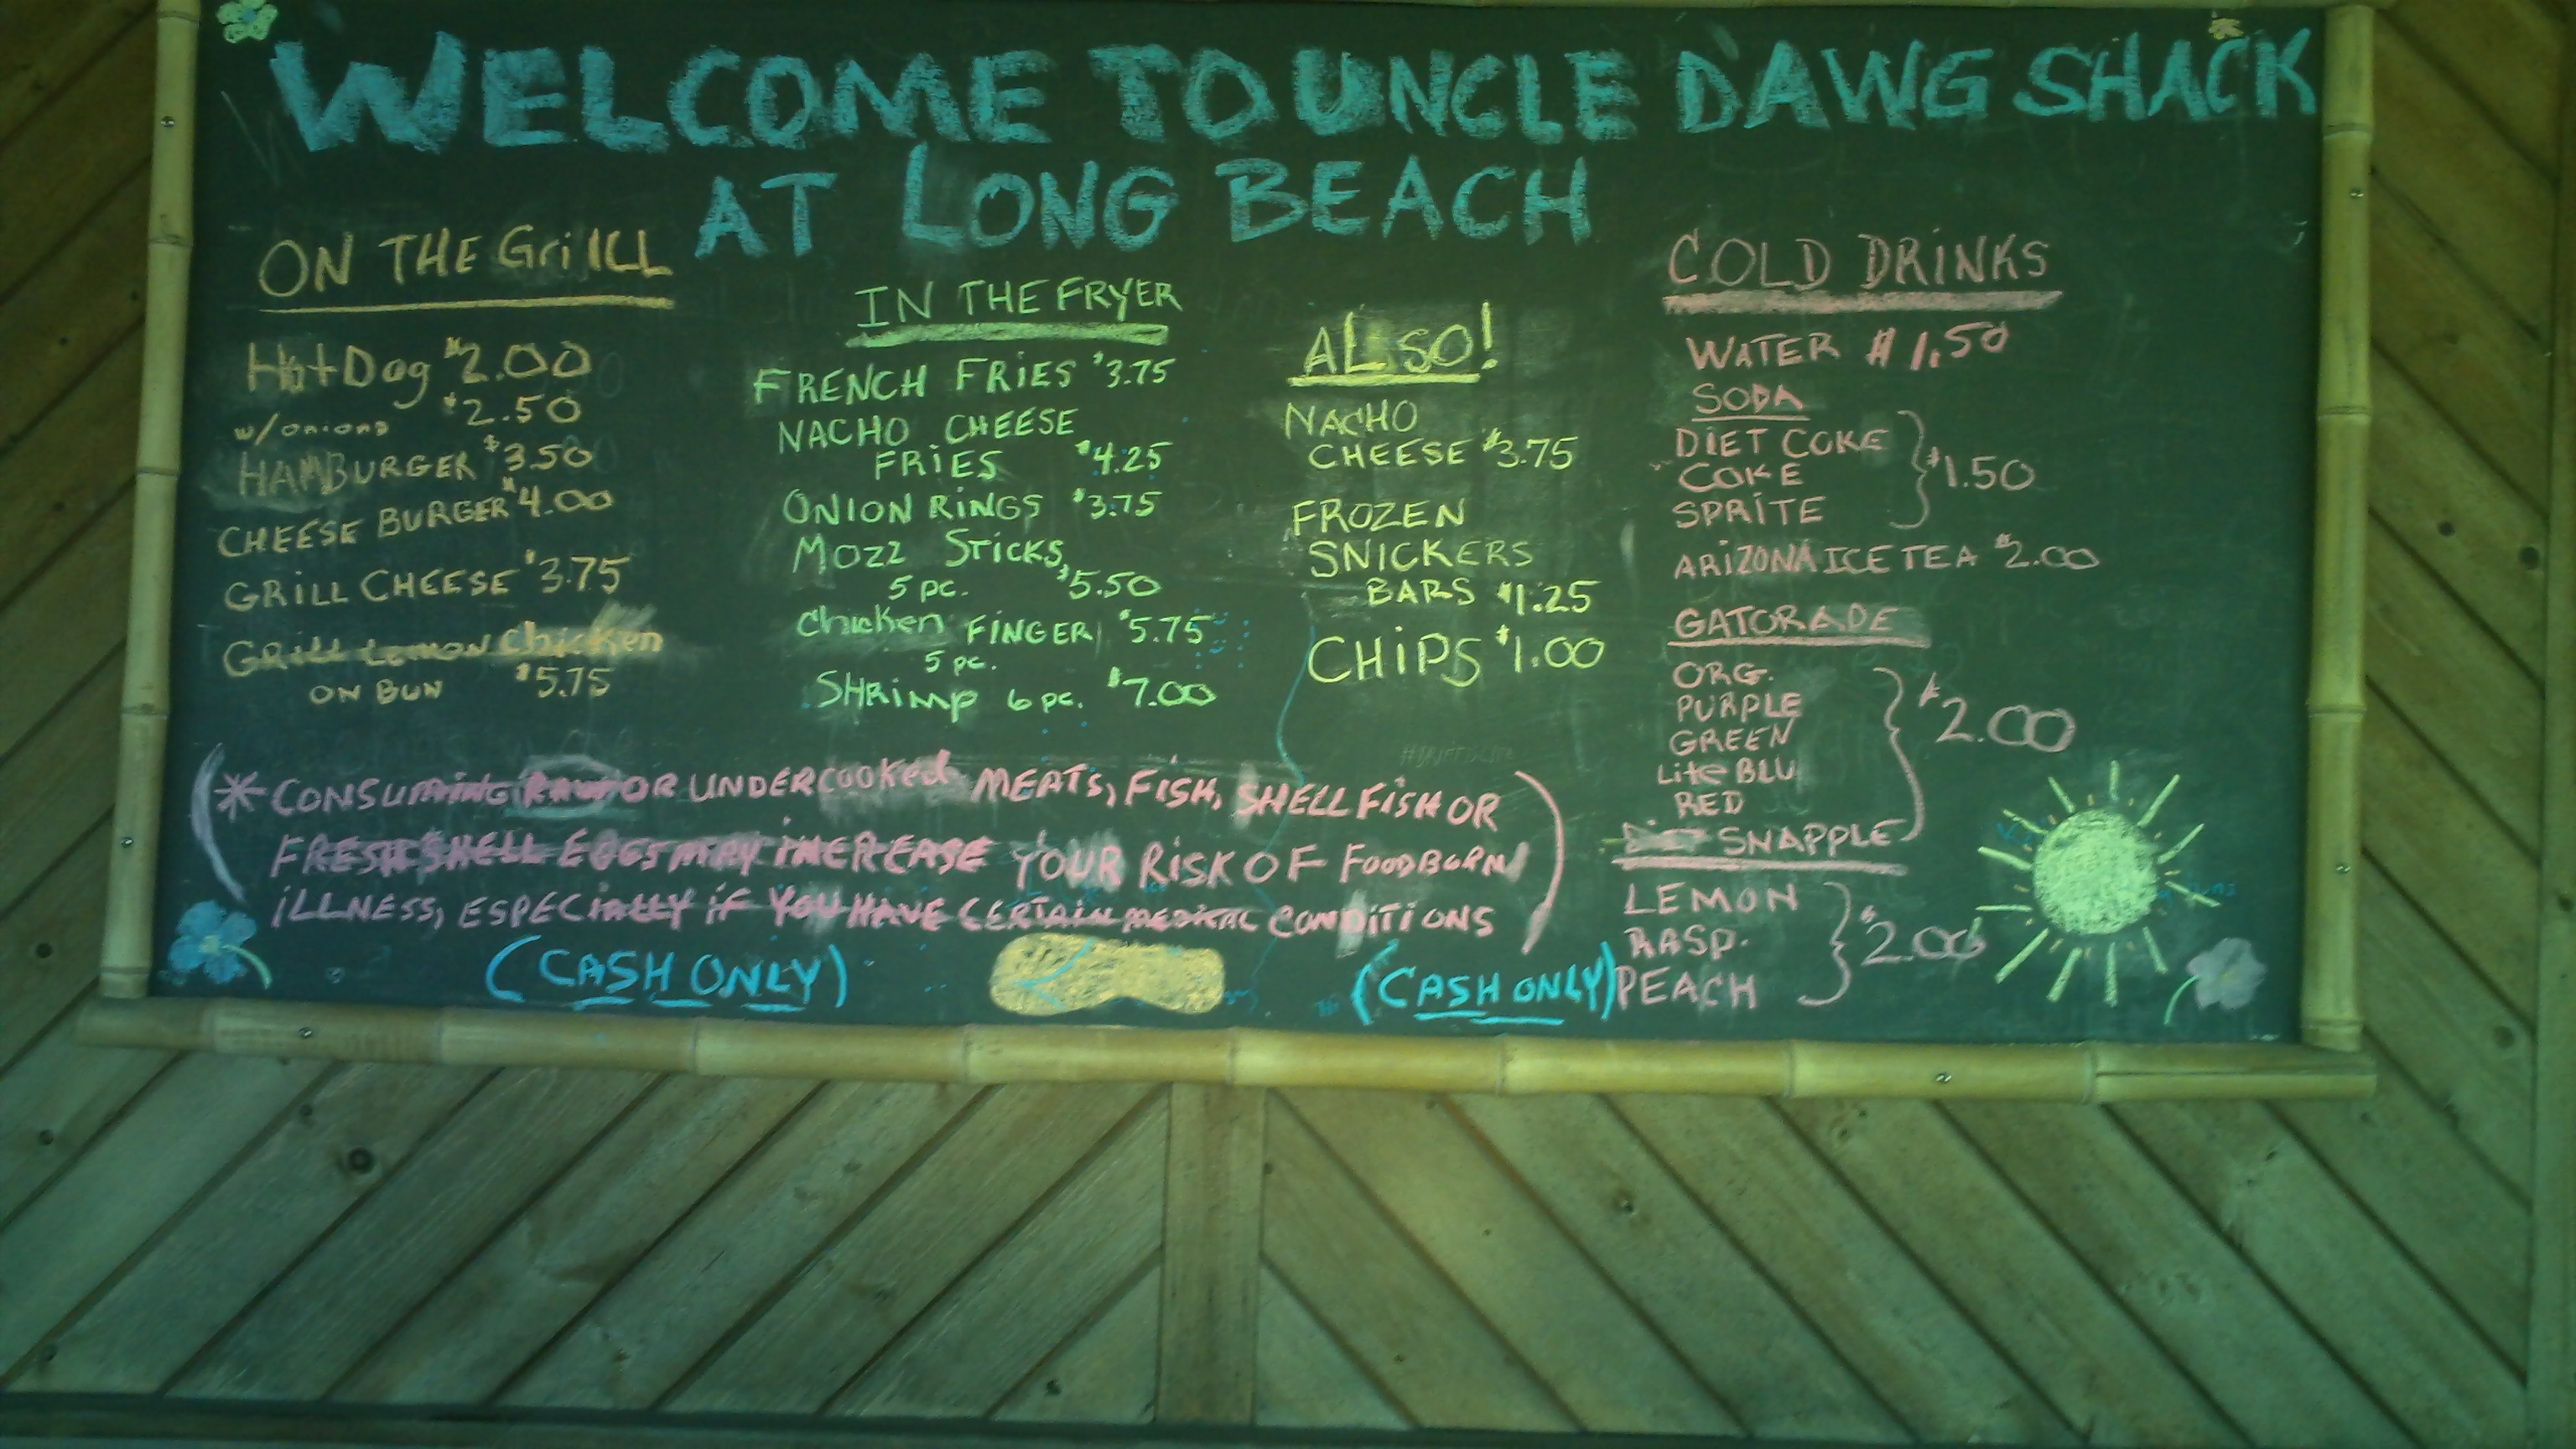 WELCOME TO UNCLE DAWG SHACK
AT LONG BEACH
ON THE GRiLL
Hot Dog $2.00
w/onions $2.50
HAMBURGER $3.50
CHEESE BURGER $4.00
GRiLL CHEESE $3.75
GRill Lemon Chicken
ON BUN $5.75
IN THE FRYER
FRENCH FRiES $3.75
NACHO CHEESE
FRiES $4.25
ONiON RiNGS $3.75
MOZZ STicKS
5 pc. $5.50
Chicken FiNGER $5.75
5 pc.
SHRimp 6 pc. $7.00
ALSO!
NACHO
CHEESE $3.75
FROZEN
SNICKERS
BARS $1.25
CHiPS $1.00
COLD DRiNKS
WATER $1.50
SODA
DiET COKE
COKE
SPRiTE
$1.50
ARiZONA ICE TEA $2.00
GATORADE
ORG.
PURPLE
GREEN
LiTe BLU
RED
$2.00
SNAPPLE
LEMON
RASP.
PEACH
$2.00
(* CONSUMiNG RAW OR UNDERcooked MEATS, FiSH, SHELL FiSH OR
FRESH SHELL EGGS MAY iNCREASE YOUR RiSK OF FOODBORN
iLLNESS, ESPECiALLY iF YOU HAVE CERTAiN MEDiCAL CONDiTiONS)
(CASH ONLY)
(CASH ONLY)